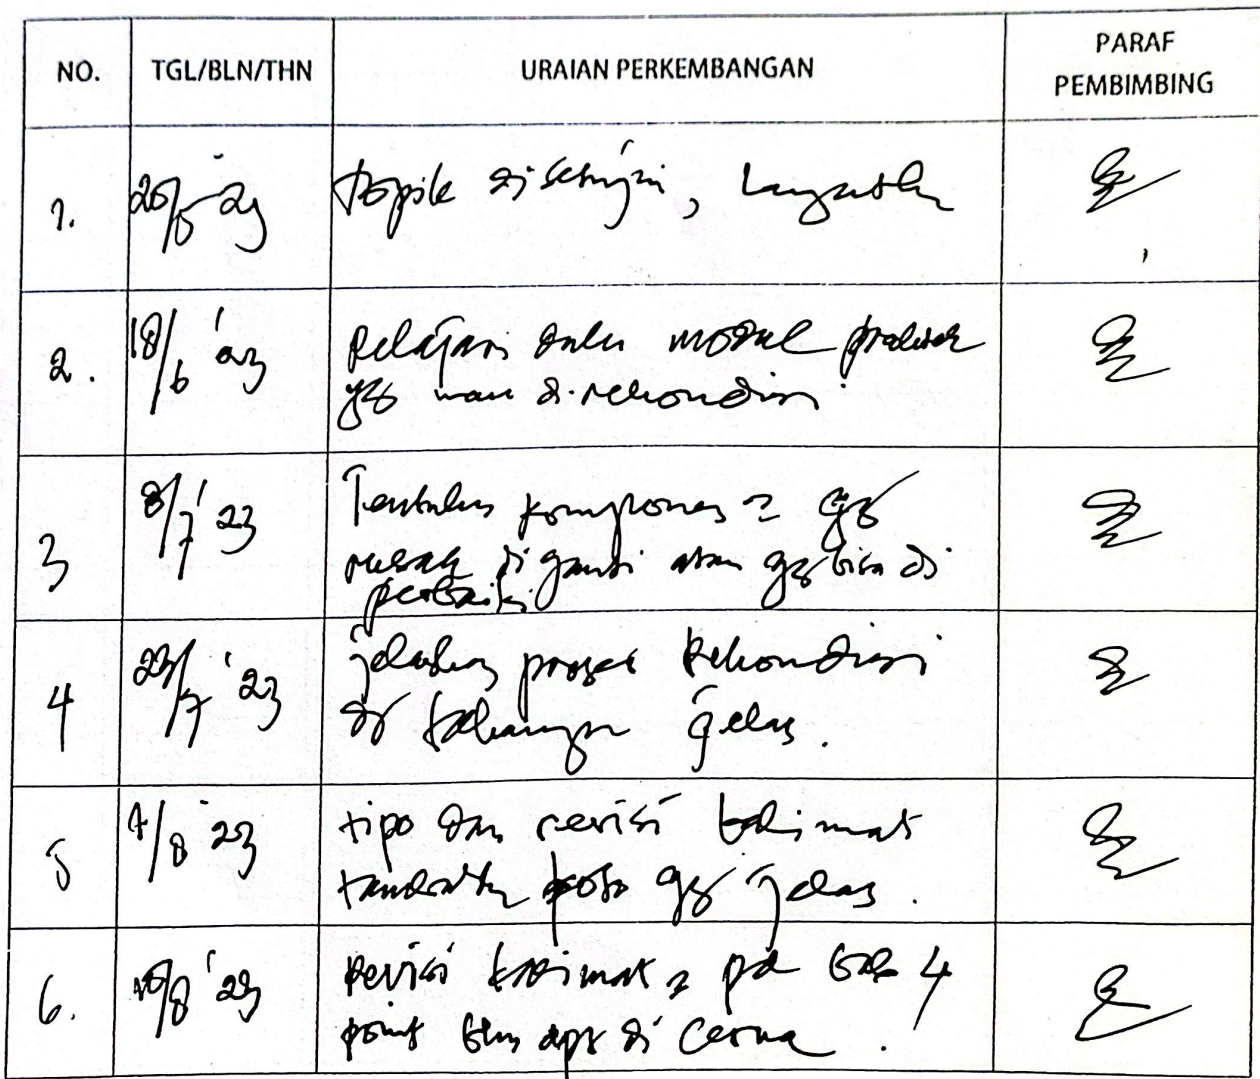 NO. TGL/BLN/THN URAIAN PERKEMBANGAN PARAF
PEMBIMBING
1. 20/5 23 topik disetujui, lanjutkan
2. 18/6 '23 pelajari dulu modul praktek
yg mau di rekondisi
3 8/7 '23 Tentukan komponen 2 yg
rusak di ganti atau yg bisa di
perbaiki
4 23/7 '23 jelaskan proses Rekondisi
dg kalimat jelas.
5 7/8 23 tipo dan revisi kalimat
foto yg jelas.
6. 8 '23 Revisi kalimat 2 pd bab 4
point blm dpt di cerna.